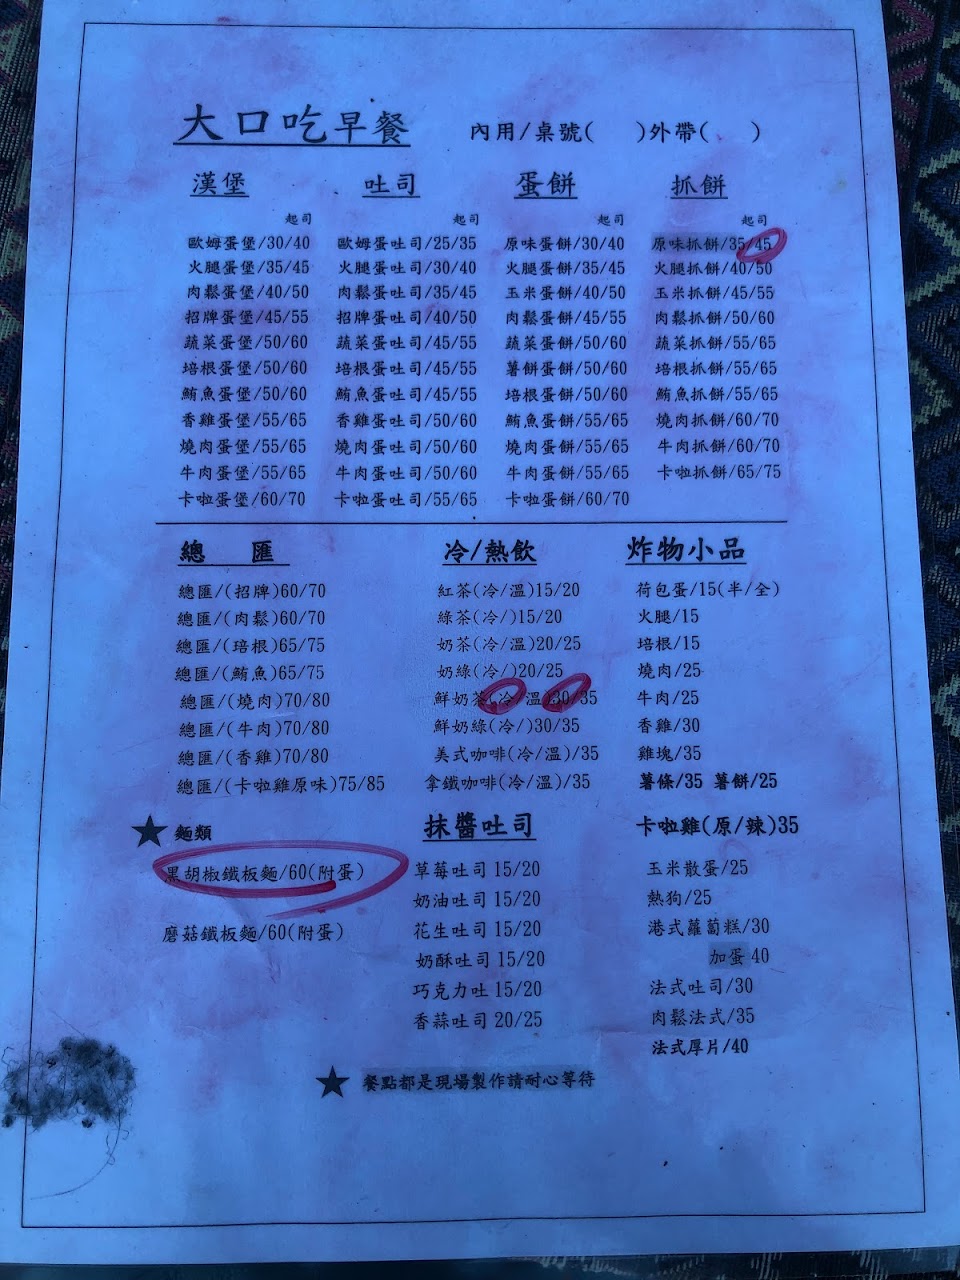 大口吃早餐 內用/桌號( )外帶( )
漢堡 吐司 蛋餅 抓餅
起司 起司 起司 起司
歐姆蛋堡/30/40 歐姆蛋吐司/25/35 原味蛋餅/30/40 原味抓餅/35/45
火腿蛋堡/35/45 火腿蛋吐司/30/40 火腿蛋餅/35/45 火腿抓餅/40/50
肉鬆蛋堡/40/50 肉鬆蛋吐司/35/45 玉米蛋餅/40/50 玉米抓餅/45/55
招牌蛋堡/45/55 招牌蛋吐司/40/50 肉鬆蛋餅/45/55 肉鬆抓餅/50/60
蔬菜蛋堡/50/60 蔬菜蛋吐司/45/55 蔬菜蛋餅/50/60 蔬菜抓餅/55/65
培根蛋堡/50/60 培根蛋吐司/45/55 薯餅蛋餅/50/60 培根抓餅/55/65
鮪魚蛋堡/50/60 鮪魚蛋吐司/45/55 培根蛋餅/50/60 鮪魚抓餅/55/65
香雞蛋堡/55/65 香雞蛋吐司/50/60 鮪魚蛋餅/55/65 燒肉抓餅/60/70
燒肉蛋堡/55/65 燒肉蛋吐司/50/60 燒肉蛋餅/55/65 牛肉抓餅/60/70
牛肉蛋堡/55/65 牛肉蛋吐司/50/60 牛肉蛋餅/55/65 卡啦抓餅/65/75
卡啦蛋堡/60/70 卡啦蛋吐司/55/65 卡啦蛋餅/60/70
總 匯
總匯/(招牌)60/70
總匯/(肉鬆)60/70
總匯/(培根)65/75
總匯/(鮪魚)65/75
總匯/(燒肉)70/80
總匯/(牛肉)70/80
總匯/(香雞)70/80
總匯/(卡啦雞原味)75/85
★ 麵類
黑胡椒鐵板麵/60(附蛋)
磨菇鐵板麵/60(附蛋)
冷/熱飲
紅茶(冷/溫)15/20
綠茶(冷/)15/20
奶茶(冷/溫)20/25
奶綠(冷/)20/25
鮮奶茶(冷/溫)30/35
鮮奶綠(冷/)30/35
美式咖啡(冷/溫)/35
拿鐵咖啡(冷/溫)/35
抹醬吐司
草莓吐司 15/20
奶油吐司 15/20
花生吐司 15/20
奶酥吐司 15/20
巧克力吐 15/20
香蒜吐司 20/25
炸物小品
荷包蛋/15(半/全)
火腿/15
培根/15
燒肉/25
牛肉/25
香雞/30
雞塊/35
薯條/35 薯餅/25
卡啦雞(原/辣)35
玉米散蛋/25
熱狗/25
港式蘿蔔糕/30
加蛋 40
法式吐司/30
肉鬆法式/35
法式厚片/40
★ 餐點都是現場製作請耐心等待